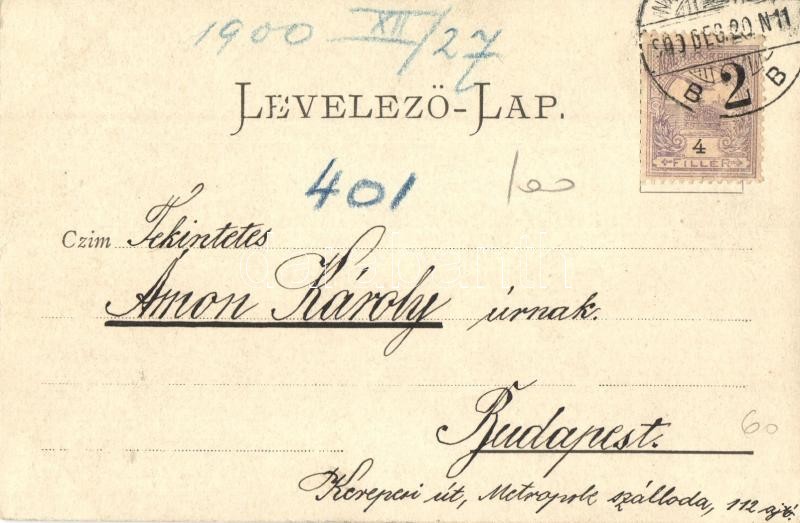 1900 XII/27
900 DEC. 20. N 11
B B
2
4
FILLÉR
LEVELEZŐ-LAP.
401
100
Czim Tekintetes
Ámon Károly úrnak.
Budapest.
60
Kerepesi út, Metropole szálloda, 112 ajtó.